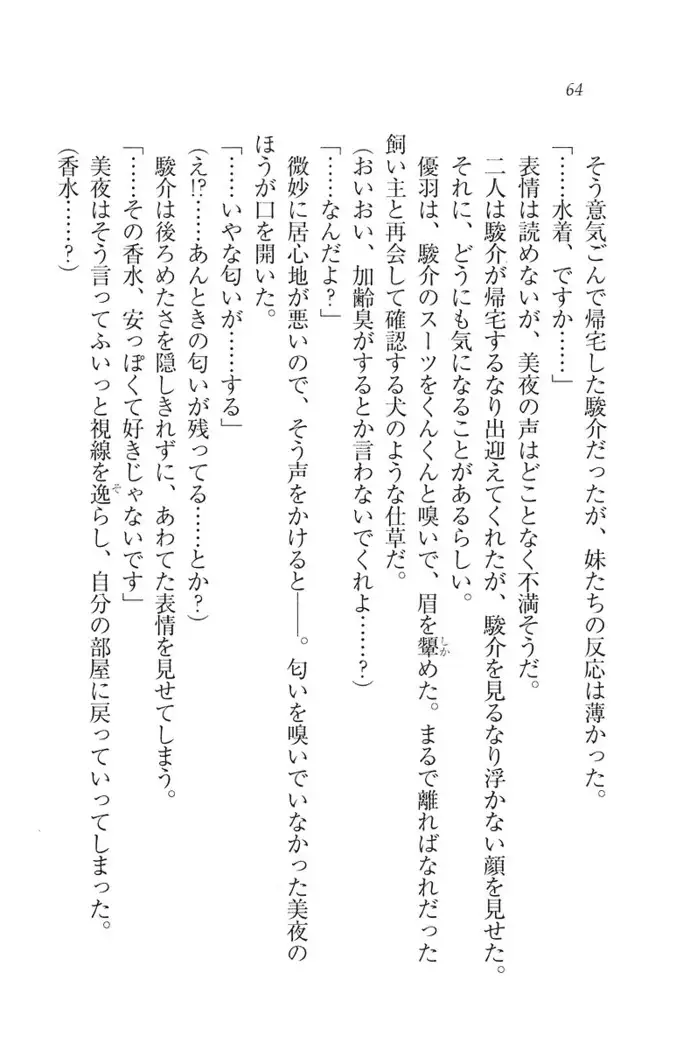 64
そう意気ごんで帰宅した駿介だったが、妹たちの反応は薄かった。
「……水着、ですか……」
表情は読めないが、美夜の声はどことなく不満そうだ。
二人は駿介が帰宅するなり出迎えてくれたが、駿介を見るなり浮かない顔を見せた。
それに、どうにも気になることがあるらしい。
優羽は、駿介のスーツをくんくんと嗅いで、眉を顰しかめた。まるで離ればなれだった
飼い主と再会して確認する犬のような仕草だ。
(おいおい、加齢臭がするとか言わないでくれよ……?)
「……なんだよ?」
微妙に居心地が悪いので、そう声をかけると――。匂いを嗅いでいなかった美夜の
ほうが口を開いた。
「……いやな匂いが……する」
(え!?……あんときの匂いが残ってる……とか?)
駿介は後ろめたさを隠しきれずに、あわてた表情を見せてしまう。
「……その香水、安っぽくて好きじゃないです」
美夜はそう言ってふいっと視線を逸そらし、自分の部屋に戻っていってしまった。
(香水……?)